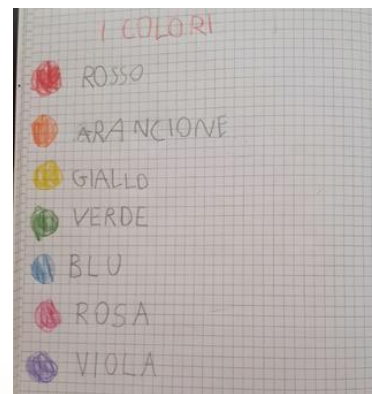 I COLORI
ROSSO
ARANCIONE
GIALLO
VERDE
BLU
ROSA
VIOLA